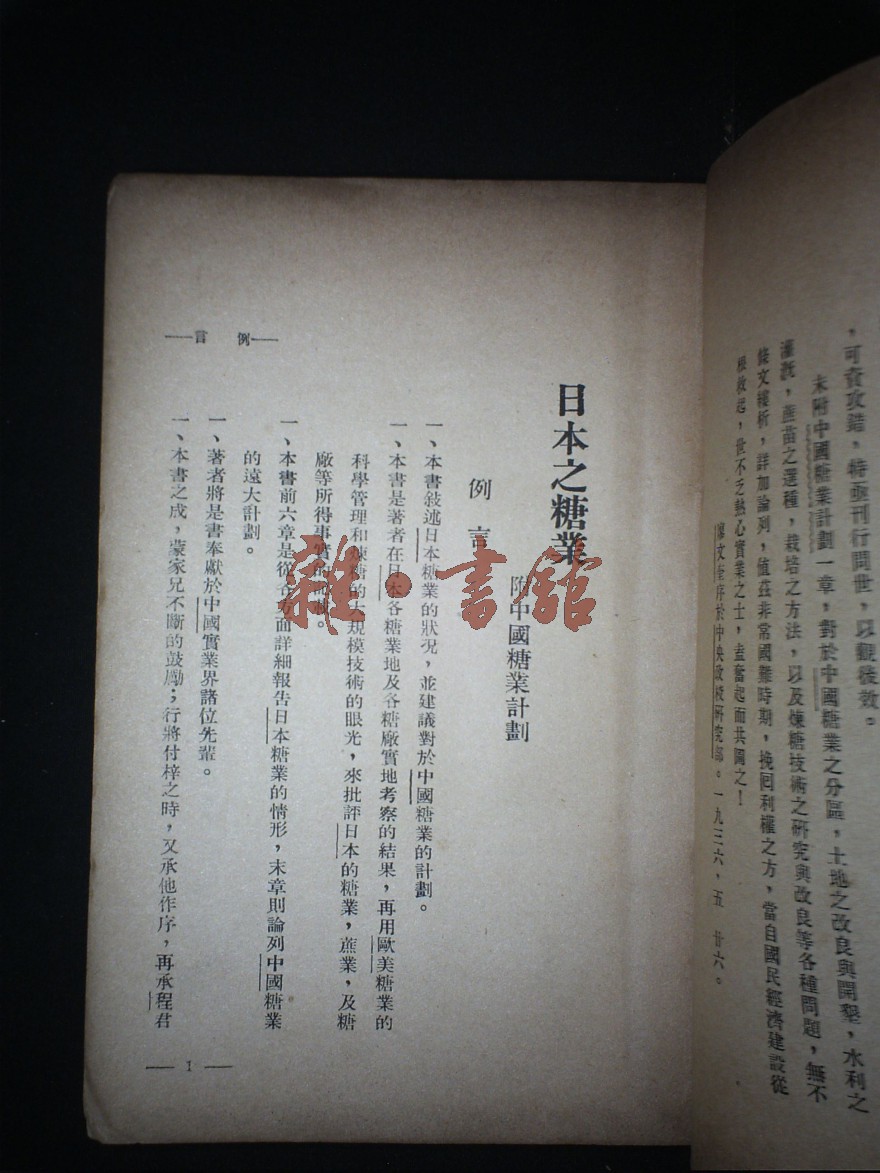 ，可資攻錯，特亟刊行問世，以觀後效。
末附中國糖業計劃一章，對於中國糖業之分區，土地之改良與開墾，水利之
灌漑，蔗苗之選種，栽培之方法，以及煉糖技術之研究與改良等各種問題，無不
條文縷析，詳加論列，值茲非常國難時期，挽囘利權之方，當自國民經濟建設從
根救起，世不乏熱心實業之士，盍奮起而共圖之！
文奎序於中央政校研究部。一九三六，五 廿六。
例言
日本之糖業
附中國糖業計劃
例言
一、本書敍述日本糖業的狀況，並建議對於中國糖業的計劃。
一、本書是著者在日本各糖業地及各糖廠實地考察的結果，再用歐美糖業的
科學管理和煉糖的大規模技術的眼光，來批評日本的糖業，蔗業，及糖
廠等所得事實的
一、本書前六章是從各方面詳細報告日本糖業的情形，末章則論列中國糖業
的遠大計劃。
一、著者將是書奉獻於中國實業界諸位先輩。
一、本書之成，蒙家兄不斷的鼓勵；行將付梓之時，又承他作序，再承程君
1
雜·書館